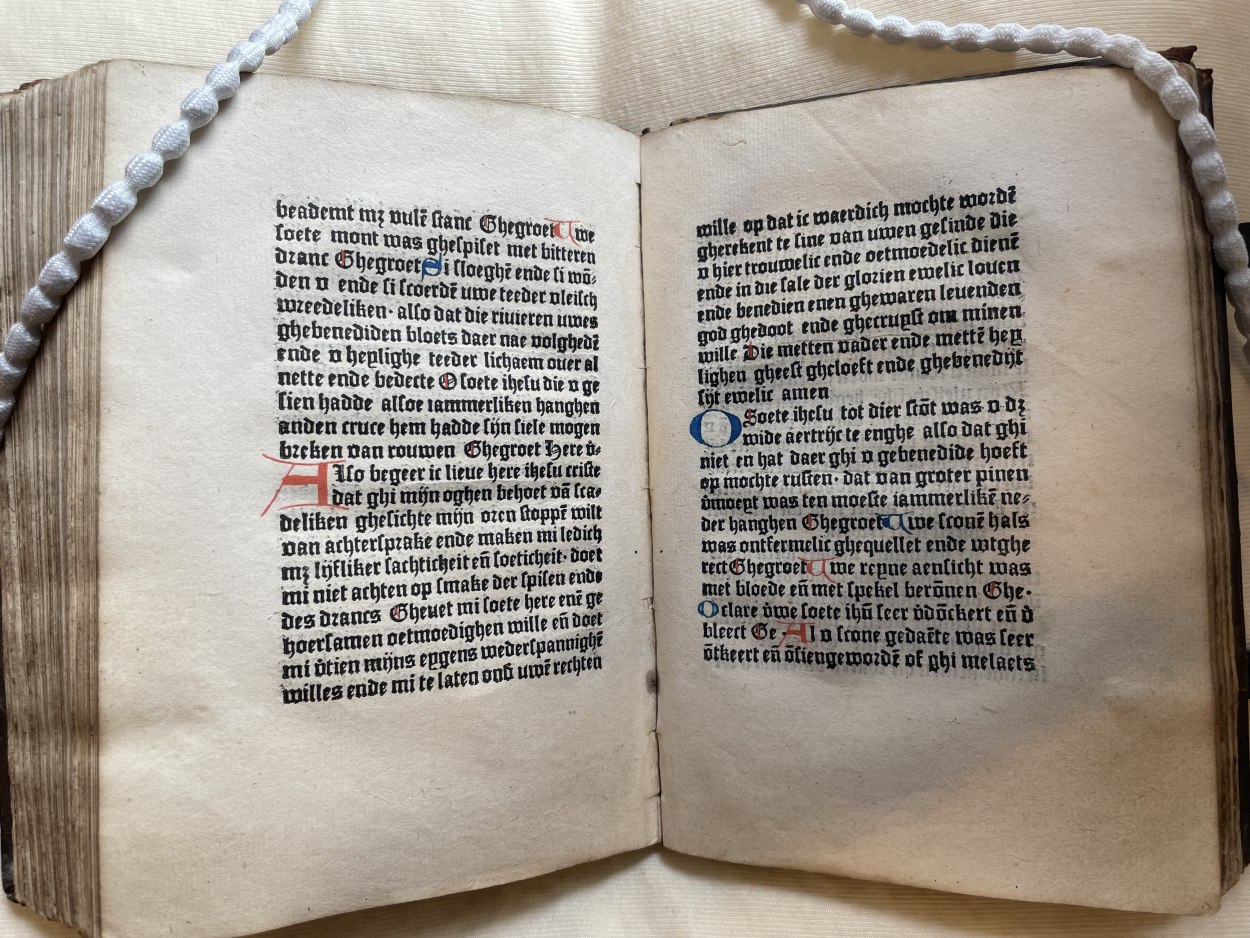 beademt mʒ vulē stanc Ghegroet Uwe
soete mont was ghespiset met bitteren
dranc Ghegroet Si sloeghē ende si wō-
den v ende si scoerdē uwe teeder vleisch
wreedeliken· also dat die rivieren uwes
ghebenediden bloets daer nae volghedē
ende v heylighe teeder lichaem ouer al
nette ende bedecte O soete ihesu die v ge
sien hadde alsoe iammerliken hanghen
anden cruce hem hadde sijn siele mogen
breken van rouwen Ghegroet Here v̄-
Also begeer ic lieue here ihesu criste
dat ghi mijn oghen behoet vā sca-
deliken ghesichte mijn oren stoppē wilt
van achtersprake ende maken mi ledich
mʒ lijfliker sachticheit eñ soeticheit· doet
mi niet achten op smake der spisen ende
des drancs Gheuet mi soete here enē ge
hoersamen oetmoedighen wille eñ doet
mi v̄tien mijns eygens wederspannighē
willes ende mi te laten ond uwē rechten
wille op dat ic waerdich mochte wordē
gherekent te sine van uwen gesinde die
v hier trouwelic ende oetmoedelic dienē
ende in die sale der glorien ewelic louen
ende benedien enen ghewaren leuenden
god ghedoot ende ghecruyst om minen
wille Die metten vader ende mettē hey
lighen gheest gheloeft ende ghebenedijt
sijt ewelic amen
O Soete ihesu tot dier stōt was v dʒ
wide aertrijc te enghe also dat ghi
niet en hat daer ghi v gebenedide hoeft
op mochte rusten· dat van groter pinen
v̄moeyt was ten moeste iammerlikē ne-
der hanghen Ghegroet Uwe sconē hals
was ontfermelic ghequellet ende wtghe
rect Ghegroet Uwe reyne aensicht was
met bloede eñ met spekel berōnen Ghe·
O clare v̄we soete ihū seer v̄dōckert eñ v̄
bleect Ge· Al v scone gedaēte was seer
ōtkeert eñ ōsiengewordē of ghi melaets